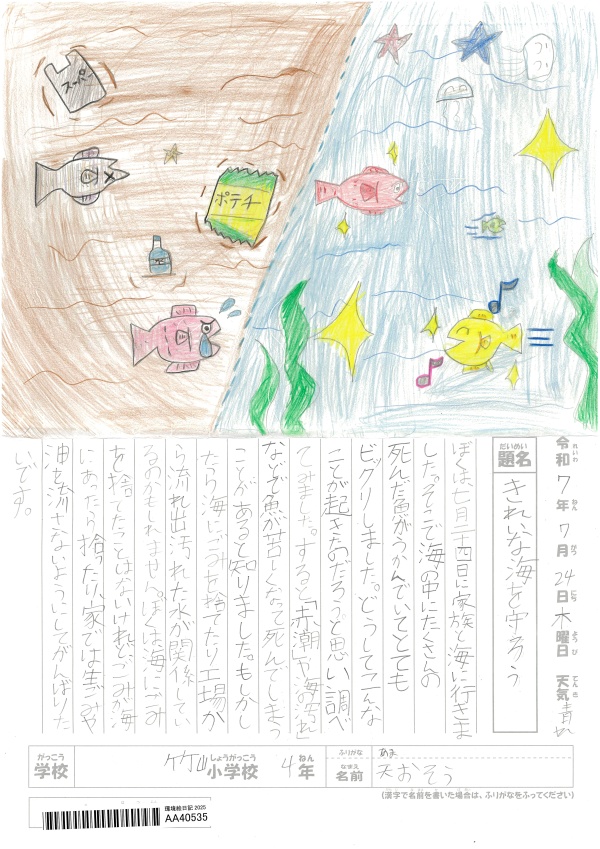 スーパー
ポテチ
令和7年7月24日木曜日 天気 晴れ
れいわ ねん がつ にち ようび てんき
だいめい
題名
きれいな海を守ろう
ぼくは七月二十四日に家族と海に行きま
した。そこで海の中にたくさんの
死んだ魚がうかんでいてとても
ビックリしました。どうしてこんな
ことが起きたのだろうと思い調べ
てみました。すると「赤潮」や海の汚れ
ないぞ魚が苦しくなって死んでしまう
ことがあると知りました。もしかし
たら海にごみを捨てたり工場か
ら流れ出汚れた水が関係してい
るのかもしれません。ぼくは海にごみ
を捨てたことはないけれどごみが海
にあったら拾ったり、家では生ごみや
油を流さないようにしてがんばりた
いです。
がっこう
学校
竹山小学校 4年
しょうがっこう ねん
ふりがな
あま
なまえ
名前
天おそう
(漢字で名前を書いた場合は、ふりがなをふってください)
環境絵日記2025
AA40535